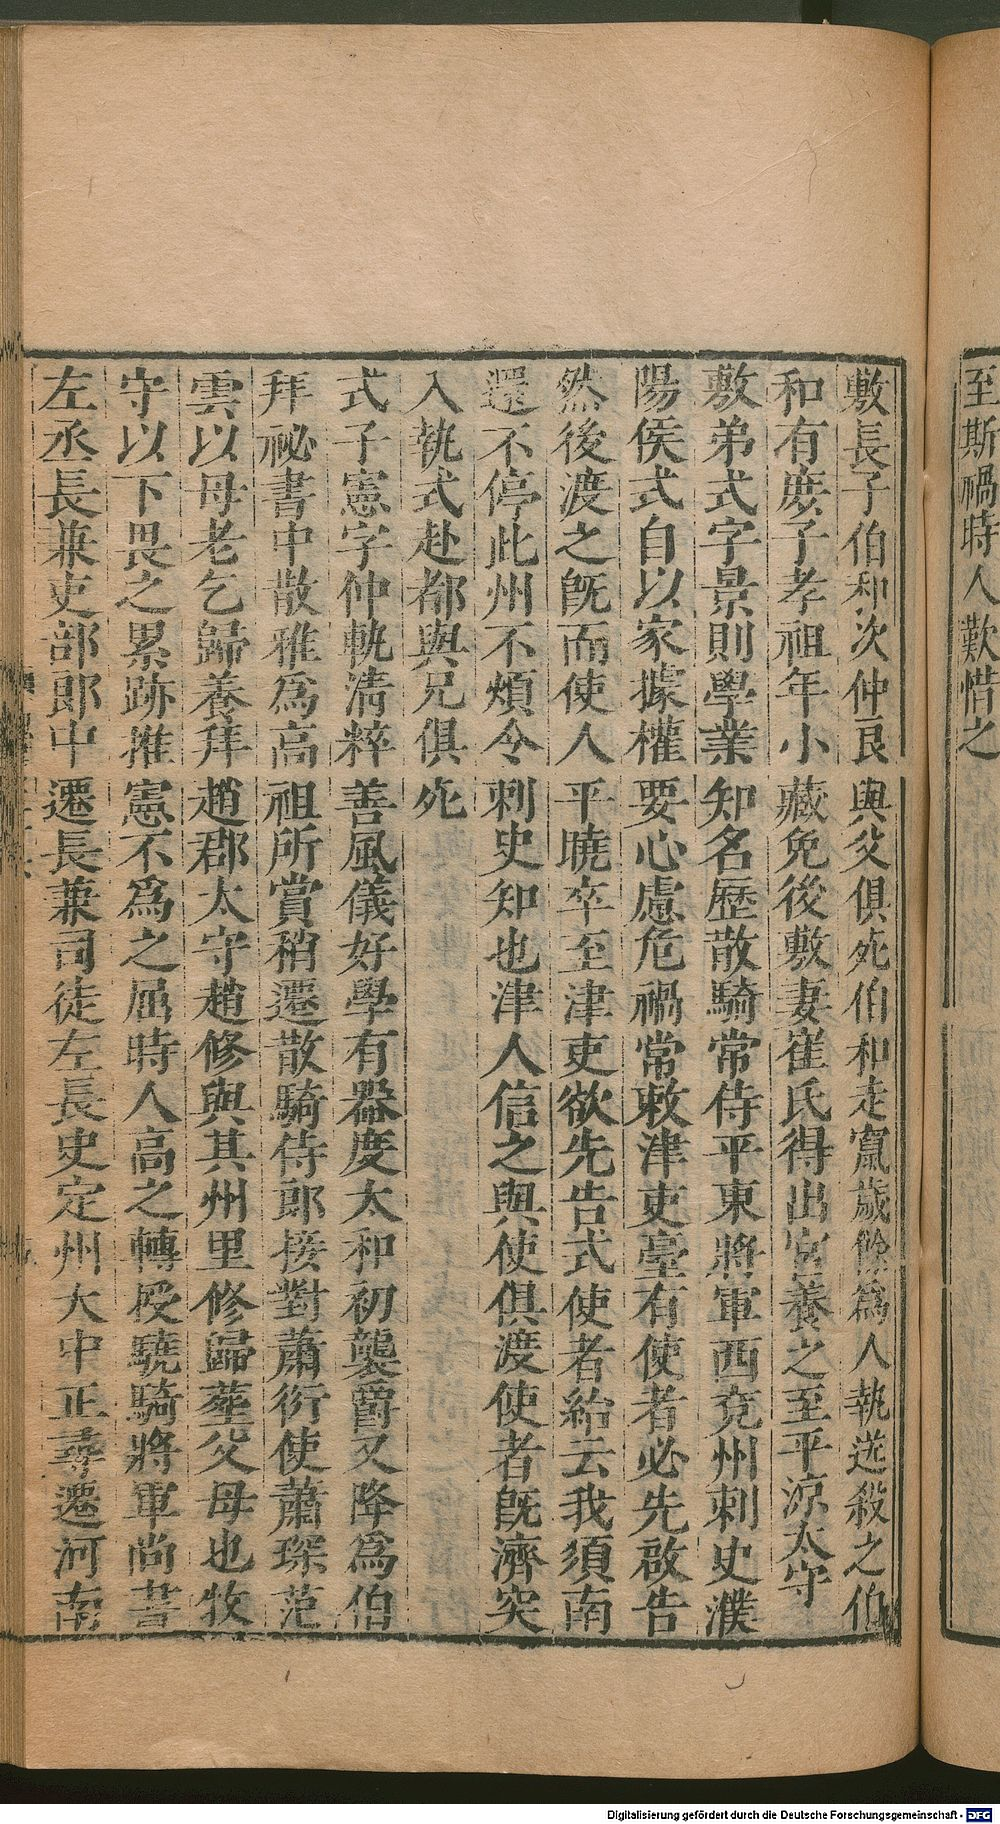 至斯禍時人歎惜之
敷長子伯和次仲良與父俱死伯和走竄歲餘爲人執送殺之伯
和有庶子孝祖年小藏免後敷妻崔氏得出宮養之至平涼太守
敷弟式字景則學業知名歷散騎常侍平東將軍西兗州刺史濮
陽侯式自以家據權要心慮危禍常敕津吏臺有使者必先啟告
然後渡之旣而使人平曉卒至津吏欲先告式使者紿云我須南
還不停此州不煩令刺史知也津人信之與使俱渡使者旣濟突
入執式赴都與兄俱死
式子憲字仲軌清粹善風儀好學有器度太和初襲爵又降爲伯
拜祕書中散雅爲高祖所賞稍遷散騎侍郎接對蕭衍使蕭琛范
雲以母老乞歸養拜趙郡太守趙修與其州里修歸葬父母也牧
守以下畏之累跡推憲不爲之屈時人高之轉授驍騎將軍尚書
左丞長兼吏部郎中遷長兼司徒左長史定州大中正尋遷河南
Digitalisierung gefördert durch die Deutsche Forschungsgemeinschaft - DFG